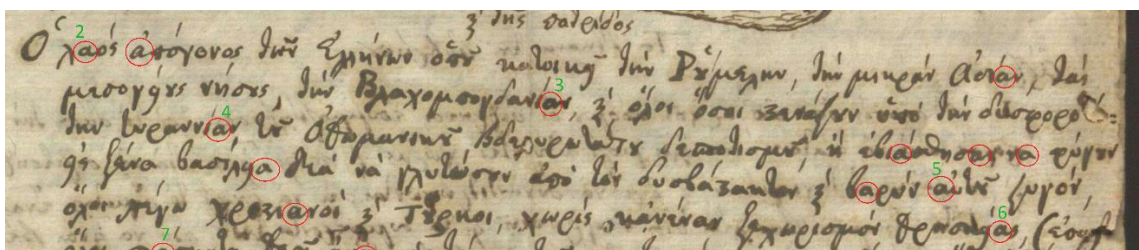 ϗ τῆς πατρίδος
2
Ὁ λαός ἀπόγονος τῶν Ἑλλήνων ὁποῦ κατοικεῖ τὴν Ῥούμελην, τὴν μικρὰν Ἀσίαν, τὰς
3
μεσογείους νήσους, τὴν Βλαχομπογδανίαν, ϗ ὅλοι ὅσοι στενάζουν ὑπὸ τὴν δυσφορο
4
την τυραννίαν τοῦ Ὀθωμανικοῦ βδελυρωτάτου δεσποτισμοῦ, ἢ ἐβιάσθησαν να φύγουν
5
εἰς ξένα βασίλεια διὰ νὰ γλυτώσουν ἀπὸ τὸν δυσβάστακτον ϗ βαρὺν αὐτοῦ ζυγόν,
6
ὅλοι λέγω χριστιανοί ϗ Τοῦρκοι, χωρὶς κανέναν ξεχωρισμὸν θρησκείας
7